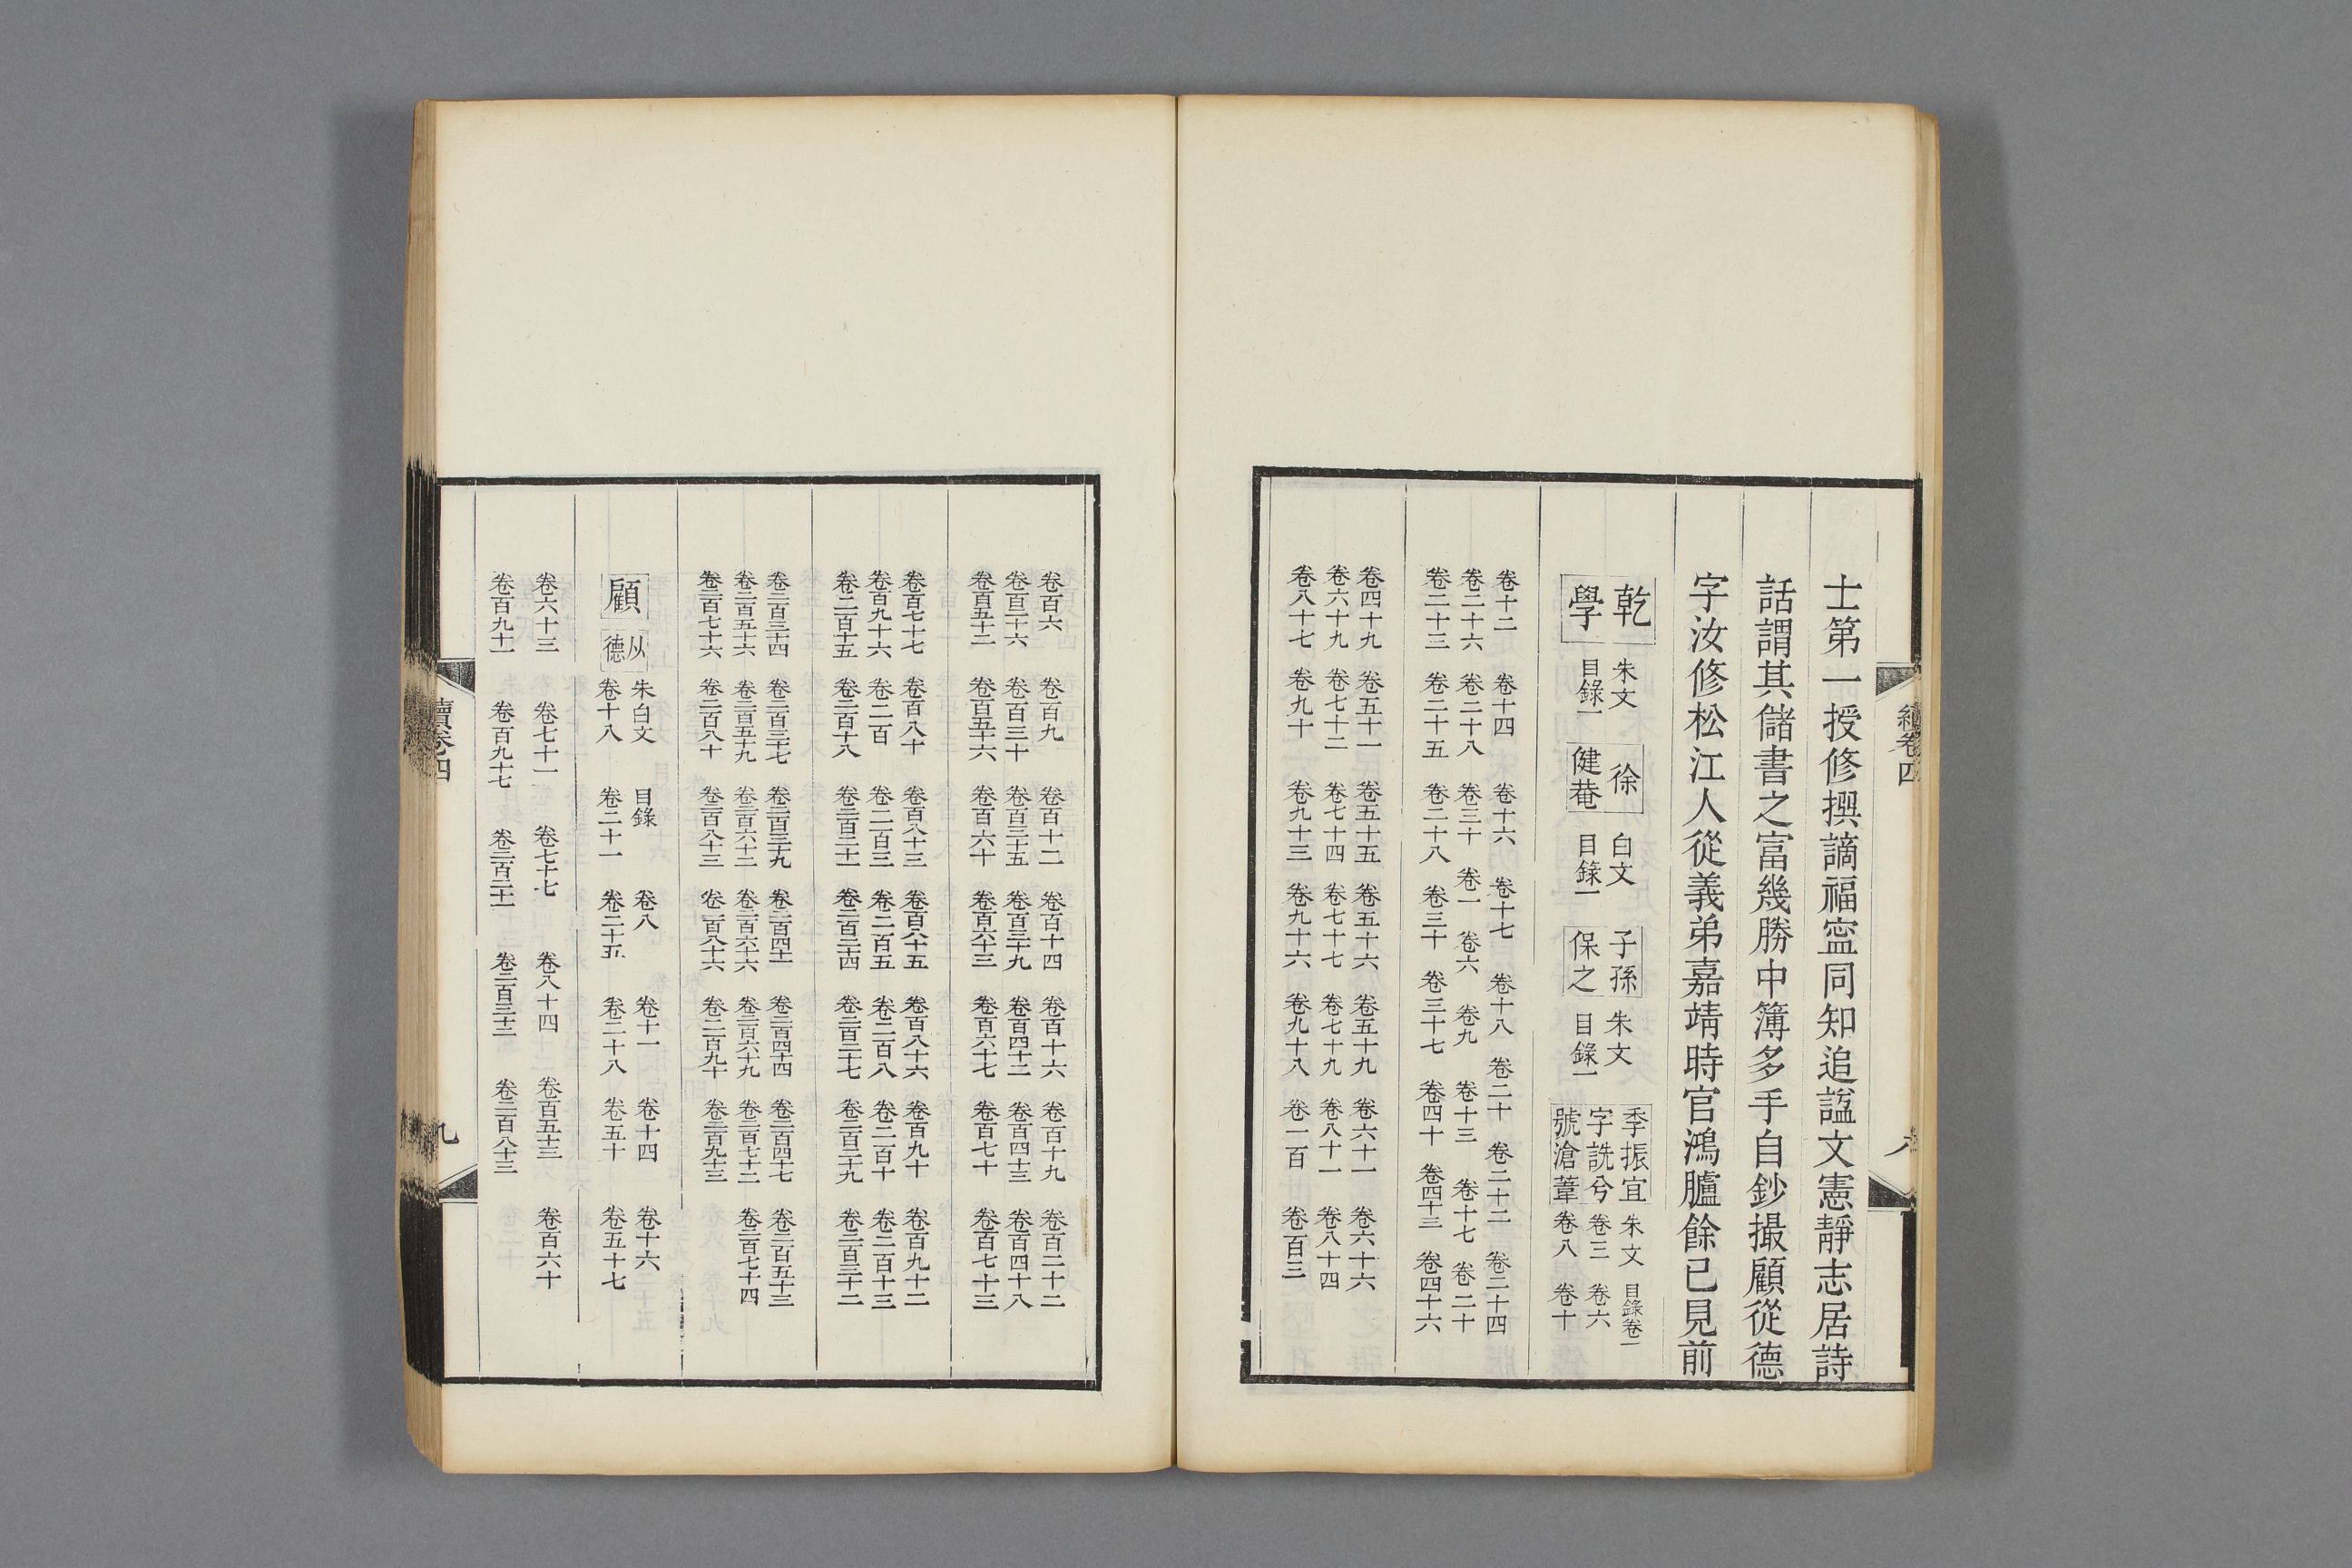 續卷四
士第一授修撰謫福寍同知追諡文憲靜志居詩
話謂其儲書之富幾勝中簿多手自鈔撮顧從德
字汝修松江人從義弟嘉靖時官鴻臚餘已見前
乾學
朱文
目錄一
徐健菴
白文
目錄一
子孫保之
朱文
目錄一
季振宜字詵兮號滄葦
朱文
目錄卷一
卷三
卷六
卷八
卷十
卷十二 卷十四 卷十六 卷十七 卷十八 卷二十 卷二十二 卷二十四
卷二十六 卷二十八 卷三十 卷一 卷六 卷九 卷十三 卷十七 卷二十
卷二十三 卷二十五 卷二十八 卷三十 卷三十七 卷四十 卷四十三 卷四十六
卷四十九 卷五十一 卷五十五 卷五十六 卷五十九 卷六十一 卷六十六
卷六十九 卷七十二 卷七十四 卷七十七 卷七十九 卷八十一 卷八十四
卷八十七 卷九十 卷九十三 卷九十六 卷九十八 卷一百 卷百三
卷百六 卷百九 卷百十二 卷百十四 卷百十六 卷百十九 卷百二十二
卷百二十六 卷百三十 卷百三十五 卷百三十九 卷百四十二 卷百四十三 卷百四十八
卷百五十二 卷百五十六 卷百六十 卷百六十三 卷百六十七 卷百七十 卷百七十三
卷百七十七 卷百八十 卷百八十三 卷百八十五 卷百八十六 卷百九十 卷百九十二
卷百九十六 卷二百 卷二百三 卷二百五 卷二百八 卷二百十 卷二百十三
卷二百十五 卷二百十八 卷二百二十一 卷二百二十四 卷二百二十七 卷二百二十九 卷二百三十二
卷二百三十四 卷二百三十七 卷二百三十九 卷二百四十一 卷二百四十四 卷二百四十七 卷二百五十三
卷二百五十六 卷二百五十九 卷二百六十二 卷二百六十六 卷二百六十九 卷二百七十二 卷二百七十四
卷二百七十六 卷二百八十 卷二百八十三 卷二百八十六 卷二百九十 卷二百九十三
顧
从德
朱白文 目錄 卷八 卷十一 卷十四 卷十六
卷十八 卷二十一 卷二十五 卷二十八 卷五十 卷五十七
卷六十三 卷七十一 卷七十七 卷八十四 卷百五十三 卷百六十
卷百九十一 卷百九十七 卷二百二十一 卷二百三十二 卷二百八十三
續卷四
九